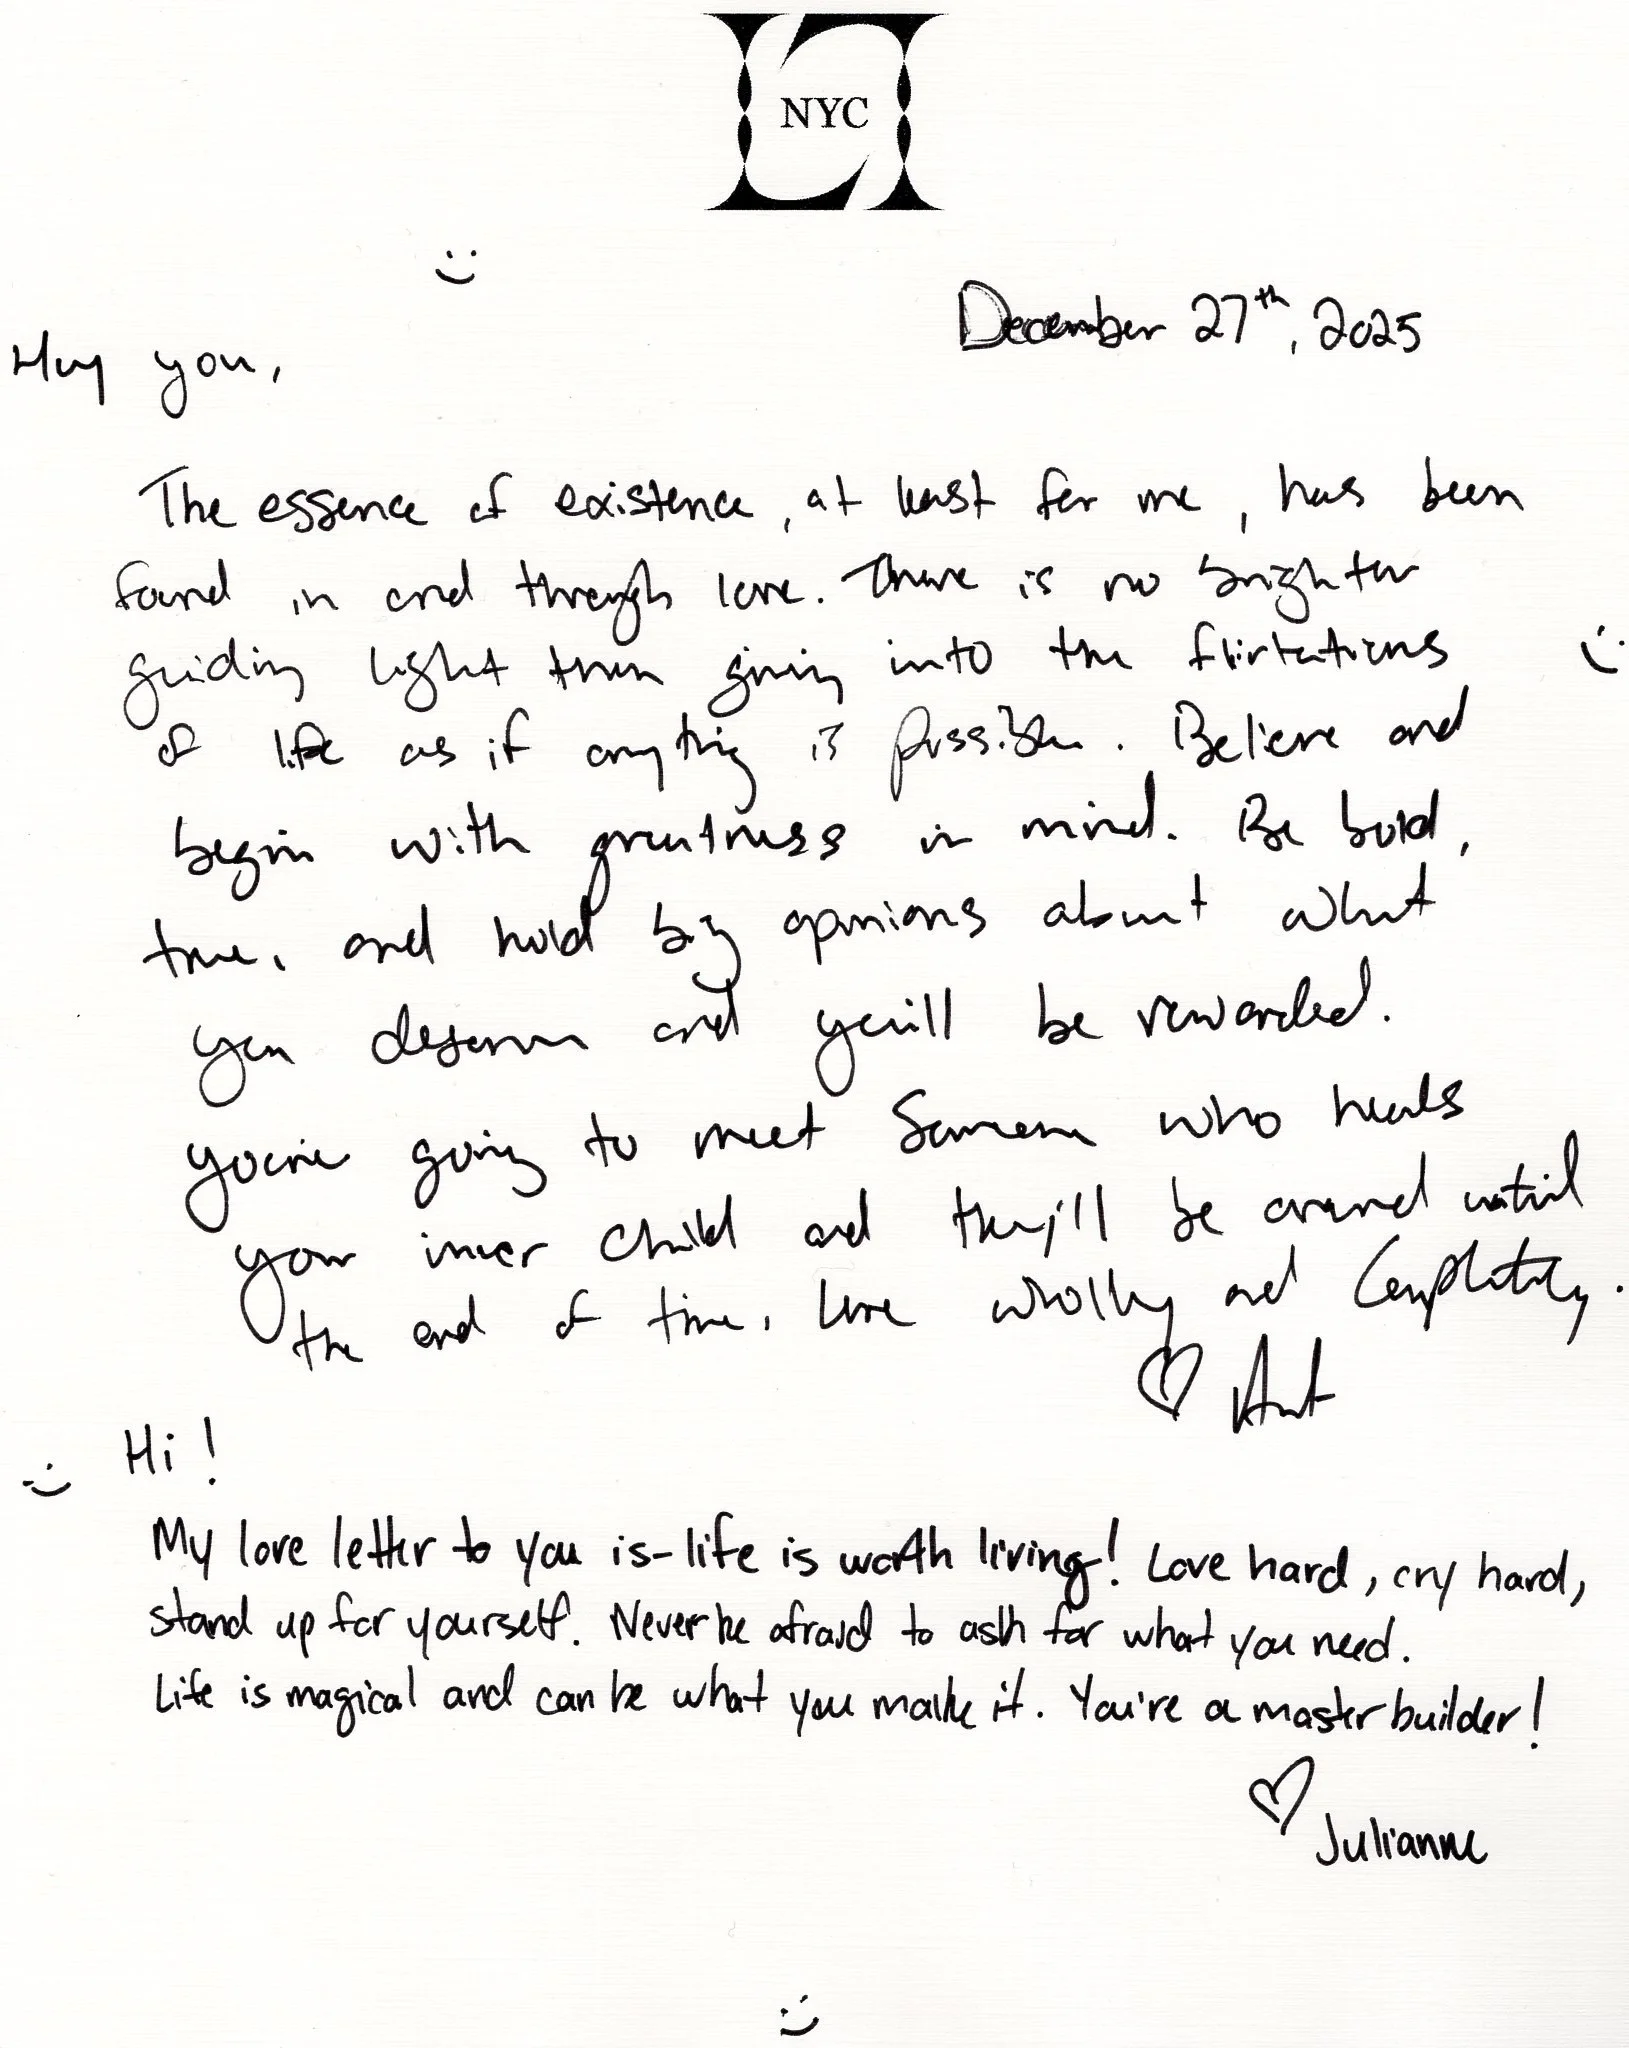 NYC
December 27th, 2025
Hey you,
The essence of existence, at least for me, has been
found in and through love. There is no brighter
guiding light than giving into the flirtations
of life as if anything is possible. Believe and
begin with greatness in mind. Be bold,
true, and hold big opinions about what
you deserve and you'll be rewarded.
You're going to meet someone who heals
your inner child and they'll be around until
the end of time. Love wholly and completely.
♡ Ant
Hi!
My love letter to you is - life is worth living! Love hard, cry hard,
stand up for yourself. Never be afraid to ask for what you need.
Life is magical and can be what you make it. You're a master builder!
♡ Julianne